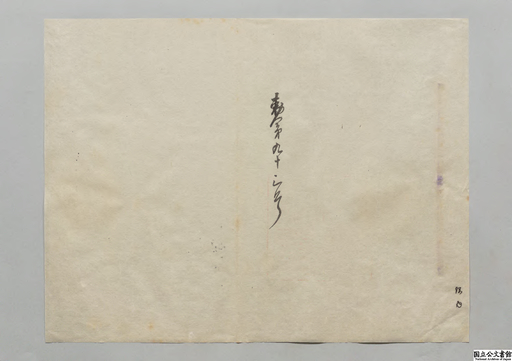 勅第九十三号
国立公文書館
National Archives of Japan